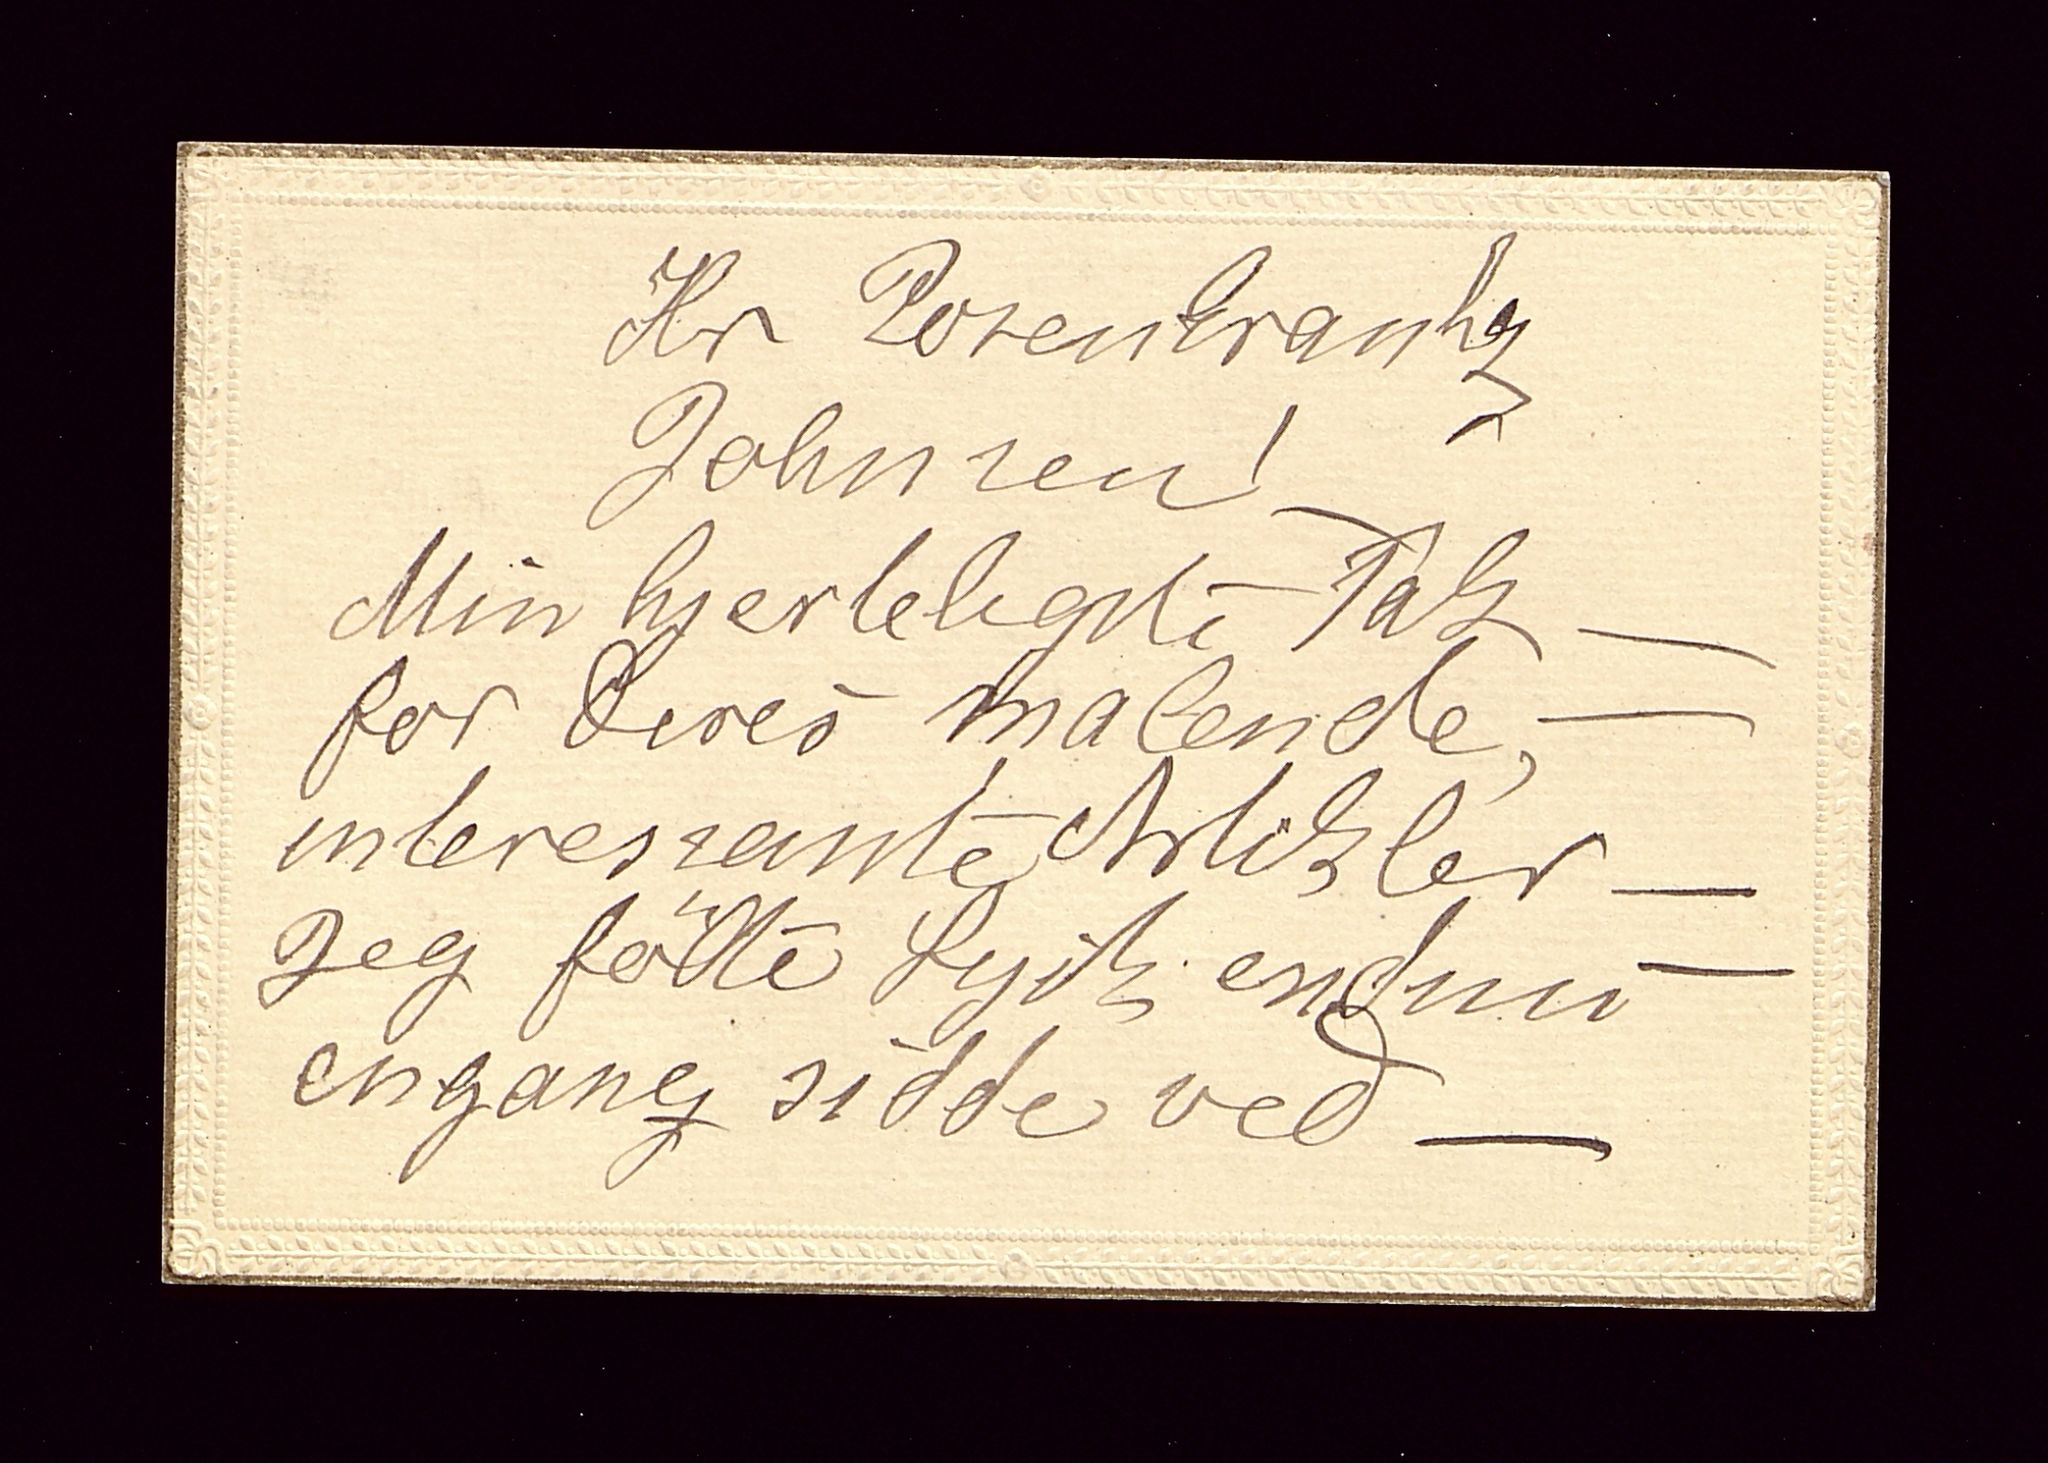 Hr Rosenkrantz
Johnsen!
Min hjerteligste Tak —
for Deres malende, —
interessante Artikler —
Jeg følte lysik endnu —
engang sidde ved —